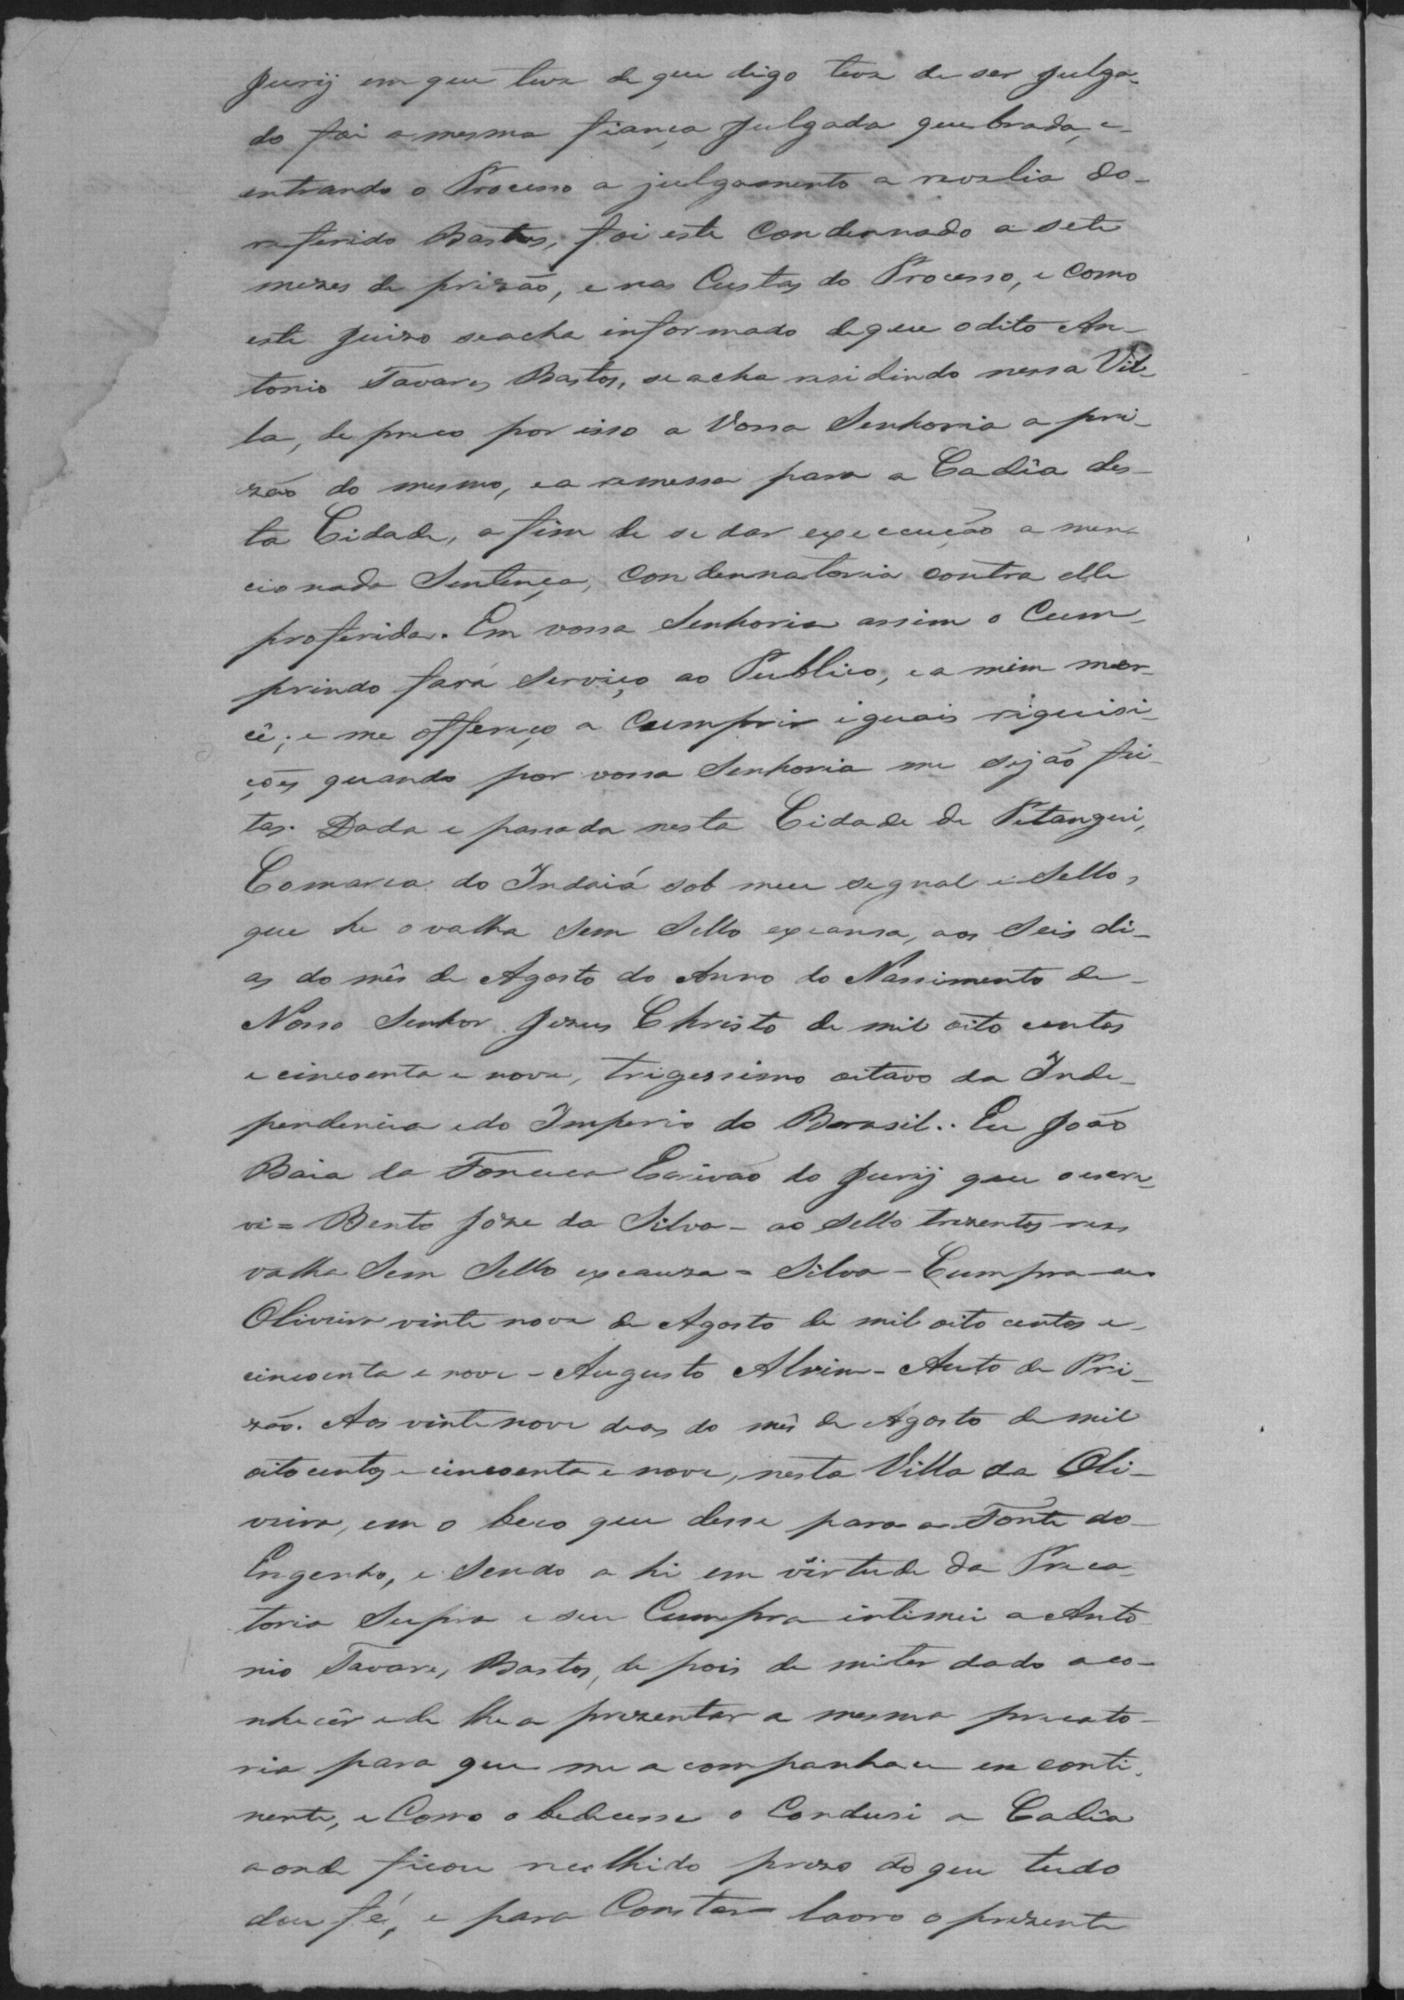 Jurÿ em que teve de que digo teve de ser julga-
do foi a mesma fiança julgada quebrada, e
entrando o Processo a julgamento a revelia do
referido Bastos, foi este Condennado a sete
mezes de prizão, e nas Custas do Processo, e Como
este Juizo se acha informado de que o dito An-
tonio Tavares Bastos, se acha residindo nessa Vil-
la, depreco por isso a Vossa Senhoria a pri-
zão do mesmo, e a remessa para a Cadêa des-
ta Cidade, a fim de se dar execcução a men-
cionada Sentença, Condennatoria contra elle
proferida. Em vossa Senhoria assim o Cum-
prindo fará serviço ao Publico, e a mim mer-
cê; e me offereço a Cumprir iguais riquisi-
ções quando por vossa Senhoria me sejão fei-
tas. Dada e passada nesta Cidade de Pitangui,
Comarca do Indaiá sob meu signal e Sello,
que he o valha Sem Sello excausa, aos Seis di-
as do mês de Agosto do Anno do Nassimento de
Nosso Senhor Jezus Christo de mil oito centos
e cincoenta e nove, trigessimo oitavo da Inde-
pendencia e do Imperio do Brasil.. Eu João
Baia da Fonceca Escrivão do Jurÿ que o escre-
vi = Bento Józe da Silva - ao Sello trezentos reis
valha Sem Sello excauza = Silva - Cumpra-se
Oliveira vinte nove de Agosto de mil oito centos e
cincoenta e nove - Augusto Alvim - Auto de Pri-
zão. Aos vinte nove dias do mês de Agosto de mil
oito centos e cincoenta e nove, nesta Villa da Oli-
veira, em o beco que desse para a Fonte do
Engenho, e Sendo a hi em virtude da Preca-
toria Supra e seu Cumpra intimei a Anto-
nio Tavares Bastos, de pois de miter dado a co-
nhecêr e de lhe a prezentar a mesma precato-
ria para que me a companhace en conti-
nente, e Como o bedecesse o Condusi a Cadêa
a onde ficou recolhido prezo do que tudo
dou fé, e para Constar lavro o prezente